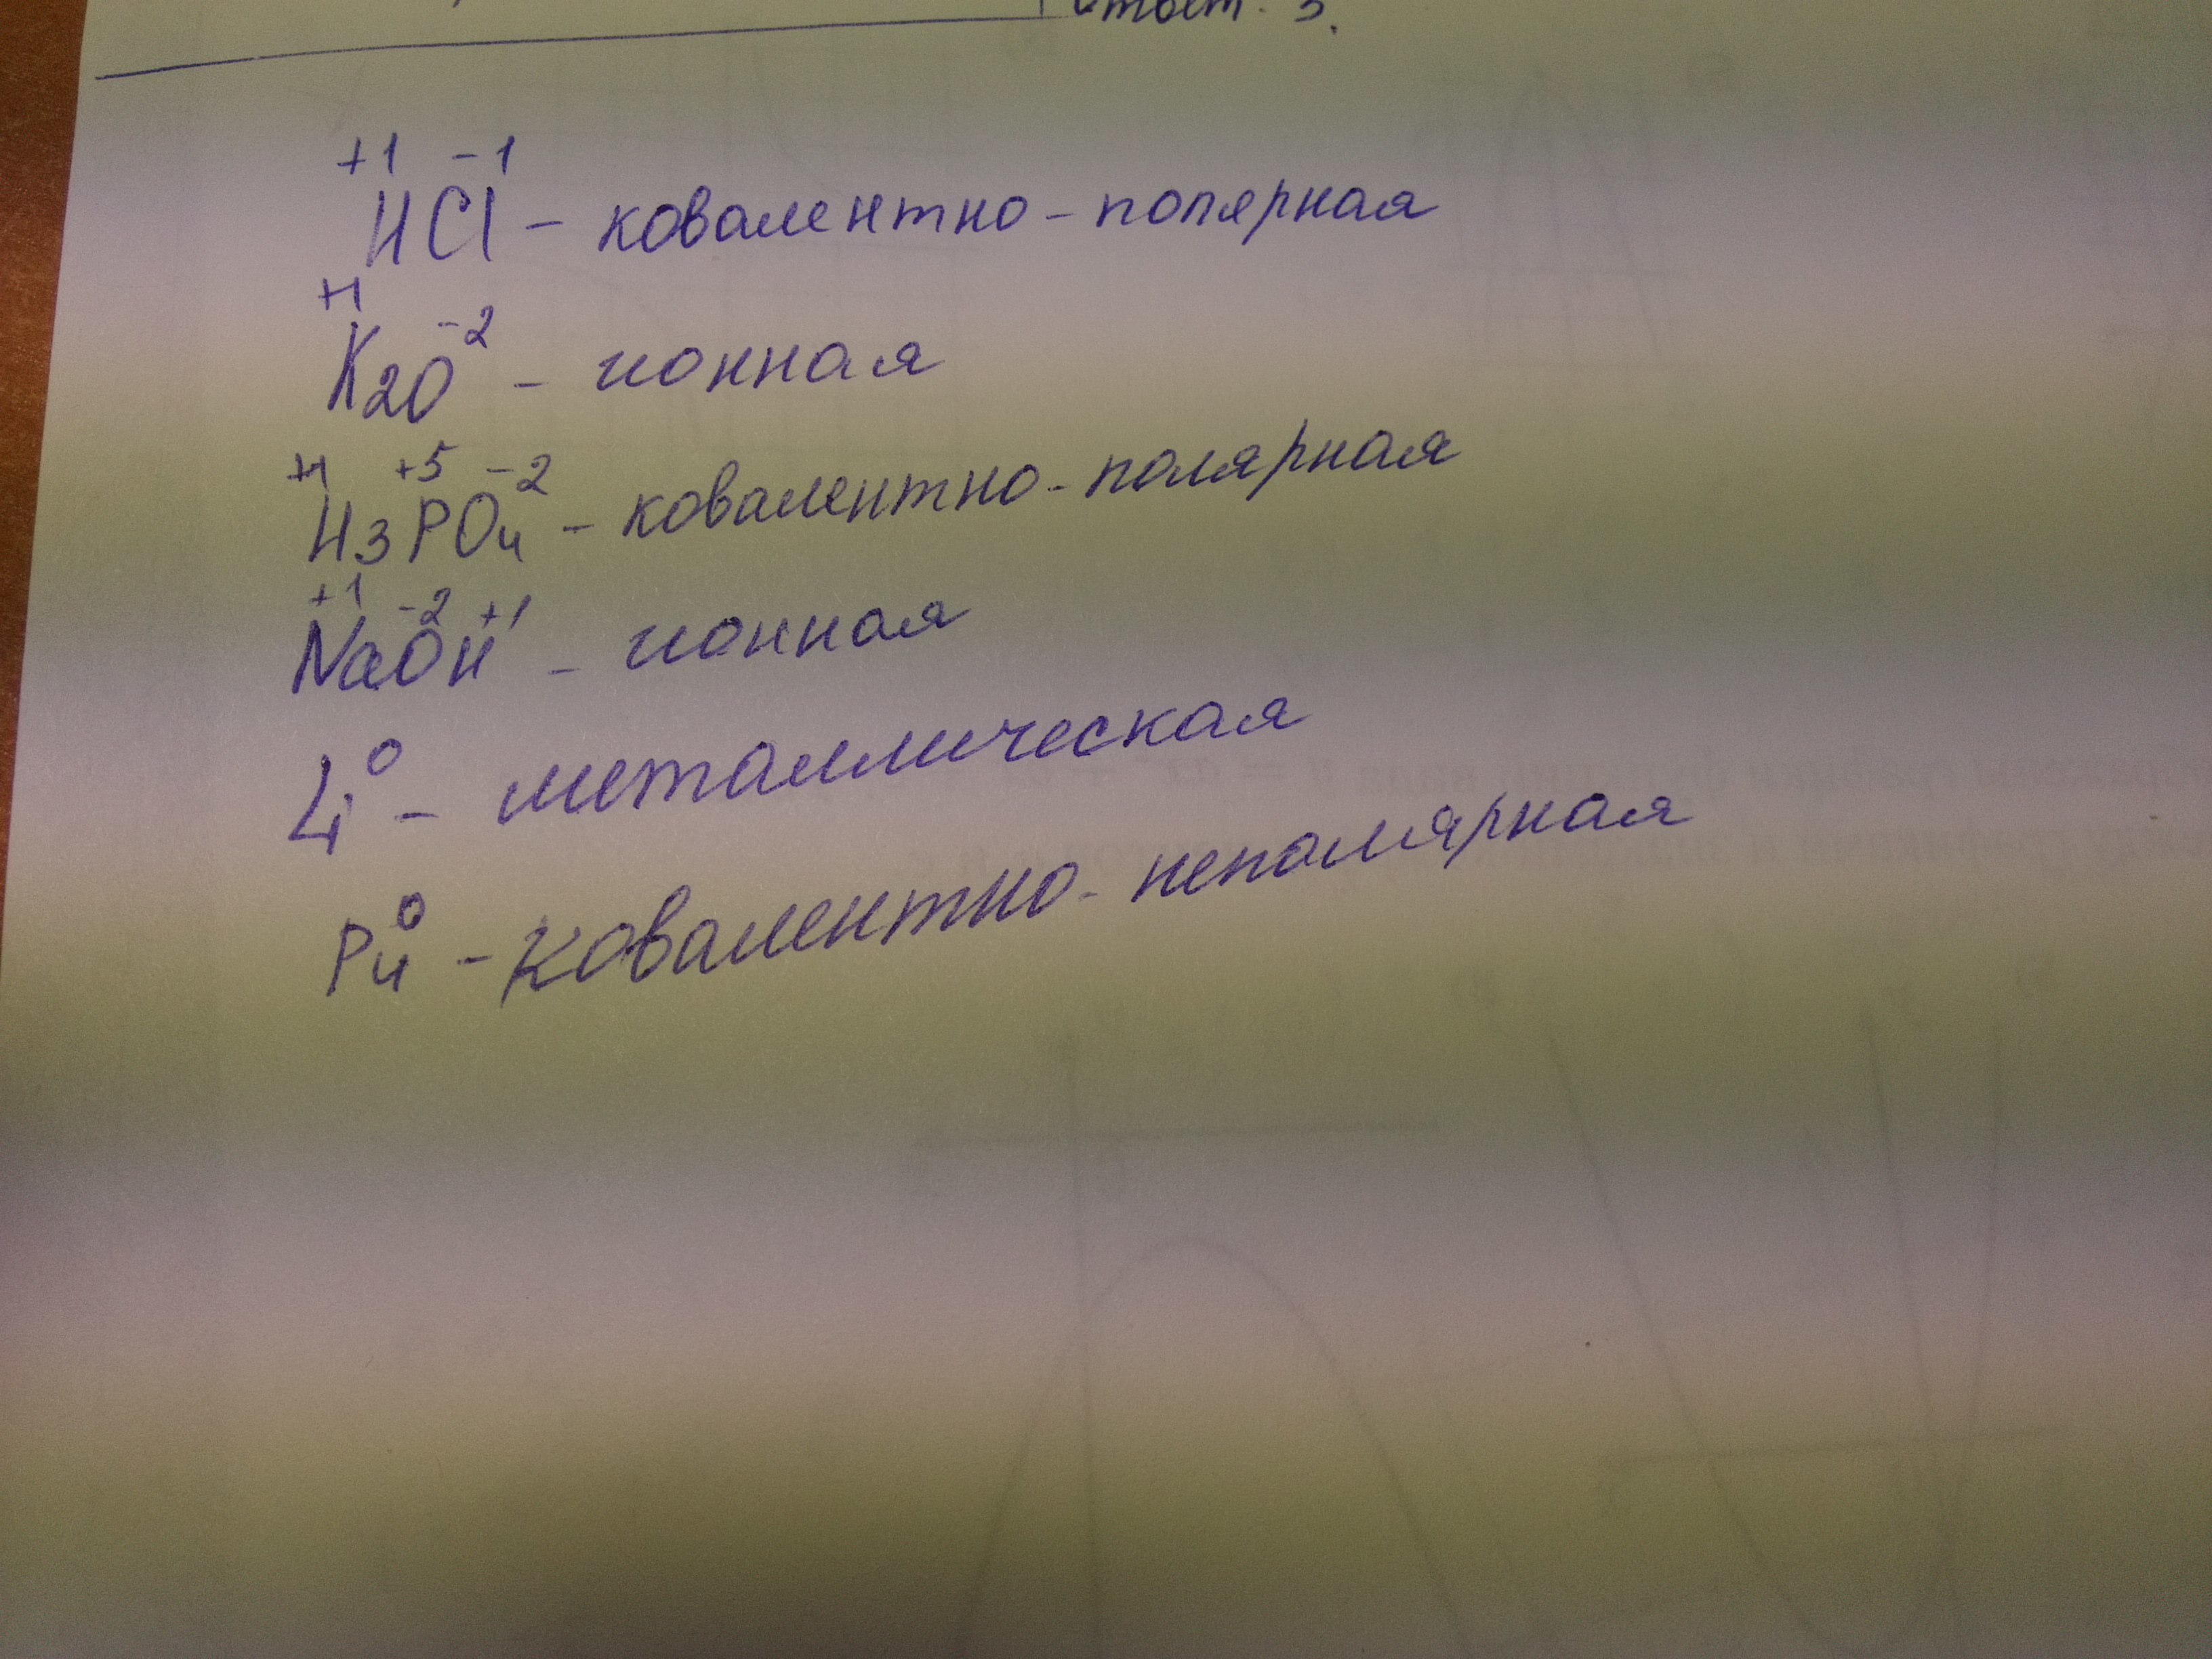 +1 -1
HCl - ковалентно - полярная
+1 -2
K2O - ионная
+1 +5 -2
H3PO4 - ковалентно - полярная
+1 -2 +1
NaOH - ионная
0
Li - металлическая
0
P4 - ковалентно - неполярная